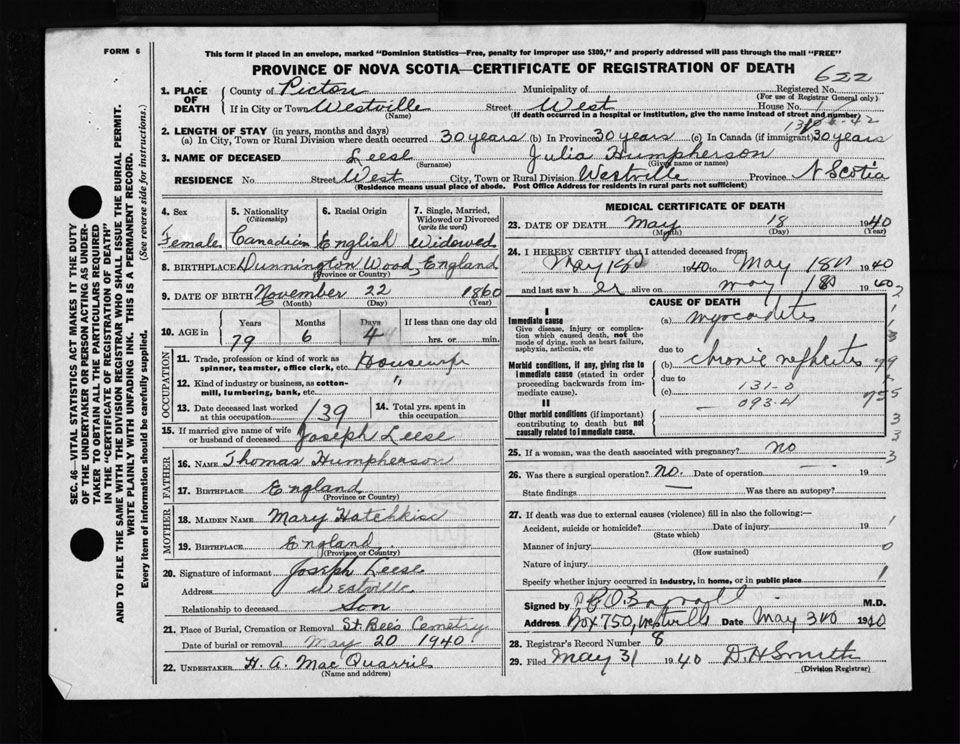 FORM 6
This form if placed in an envelope, marked "Dominion Statistics—Free, penalty for improper use $300," and properly addressed will pass through the mail "FREE"
PROVINCE OF NOVA SCOTIA—CERTIFICATE OF REGISTRATION OF DEATH
622
SEC. 46—VITAL STATISTICS ACT MAKES IT THE DUTY
OF THE UNDERTAKER OR PERSON ACTING AS UNDER-
TAKER TO OBTAIN ALL THE PARTICULARS REQUIRED
IN THE "CERTIFICATE OF REGISTRATION OF DEATH"
AND TO FILE THE SAME WITH THE DIVISION REGISTRAR WHO SHALL ISSUE THE BURIAL PERMIT.
WRITE PLAINLY WITH UNFADING INK. THIS IS A PERMANENT RECORD.
Every item of information should be carefully supplied. (See reverse side for instructions.)
1. PLACE OF DEATH
County of Pictou Municipality of Registered No.
(For use of Registrar General only)
If in City or Town Westville Street West House No.
(Name) (If death occurred in a hospital or institution, give the name instead of street and number)
2. LENGTH OF STAY (in years, months and days)
(a) In City, Town or Rural Division where death occurred 30 years (b) In Province 30 years (c) In Canada (if immigrant) 30 years
3. NAME OF DECEASED Leese Julia Humpherson
(Surname) (Given name or names)
RESIDENCE No. Street West City, Town or Rural Division Westville Province N Scotia
(Residence means usual place of abode. Post Office Address for residents in rural parts not sufficient)
4. Sex
Female
5. Nationality
(Citizenship)
Canadian
6. Racial Origin
English
7. Single, Married, Widowed or Divorced
(write the word)
Widowed
8. BIRTHPLACE Dunnington Wood, England
(Province or Country)
9. DATE OF BIRTH November 22 1860
(Month) (Day) (Year)
10. AGE in Years Months Days If less than one day old
79 6 4 hrs. or min.
OCCUPATION
11. Trade, profession or kind of work as
spinner, teamster, office clerk, etc. Housewife
12. Kind of industry or business, as cotton-
mill, lumbering, bank, etc. "
13. Date deceased last worked
at this occupation 139
14. Total yrs. spent in
this occupation
15. If married give name of wife
or husband of deceased Joseph Leese
FATHER
16. NAME Thomas Humpherson
17. BIRTHPLACE England
(Province or Country)
MOTHER
18. MAIDEN NAME Mary Hatchkiss
19. BIRTHPLACE England
(Province or Country)
20. Signature of informant Joseph Leese
Address Westville
Relationship to deceased Son
21. Place of Burial, Cremation or Removal St. Bees Cemetry
Date of burial or removal May 20 1940
22. UNDERTAKER H. A. MacQuarrie
(Name and address)
MEDICAL CERTIFICATE OF DEATH
23. DATE OF DEATH May 18 1940
(Month) (Day) (Year)
24. I HEREBY CERTIFY that I attended deceased from
May 18th 1940 to May 18th 1940
and last saw h er alive on May 18 1940
CAUSE OF DEATH
I
Immediate cause
Give disease, injury or complica-
tion which caused death, not the
mode of dying, such as heart failure,
asphyxia, asthenia, etc
(a) myocarditis
due to
Morbid conditions, if any, giving rise to
immediate cause (stated in order
proceeding backwards from im-
mediate cause).
(b) chronic nephritis
due to
(c) 131-0
093-4
II
Other morbid conditions (if important)
contributing to death but not
causally related to immediate cause.
25. If a woman, was the death associated with pregnancy? no
26. Was there a surgical operation? no. Date of operation 19
State findings Was there an autopsy?
27. If death was due to external causes (violence) fill in also the following:—
Accident, suicide or homicide? Date of injury 19
(State which)
Manner of injury
(How sustained)
Nature of injury
Specify whether injury occurred in industry, in home, or in public place
Signed by M.D.
Address Box 750, Westville Date May 30 1940
28. Registrar's Record Number 8
29. Filed May 31 1940 D. H Smith
(Division Registrar)